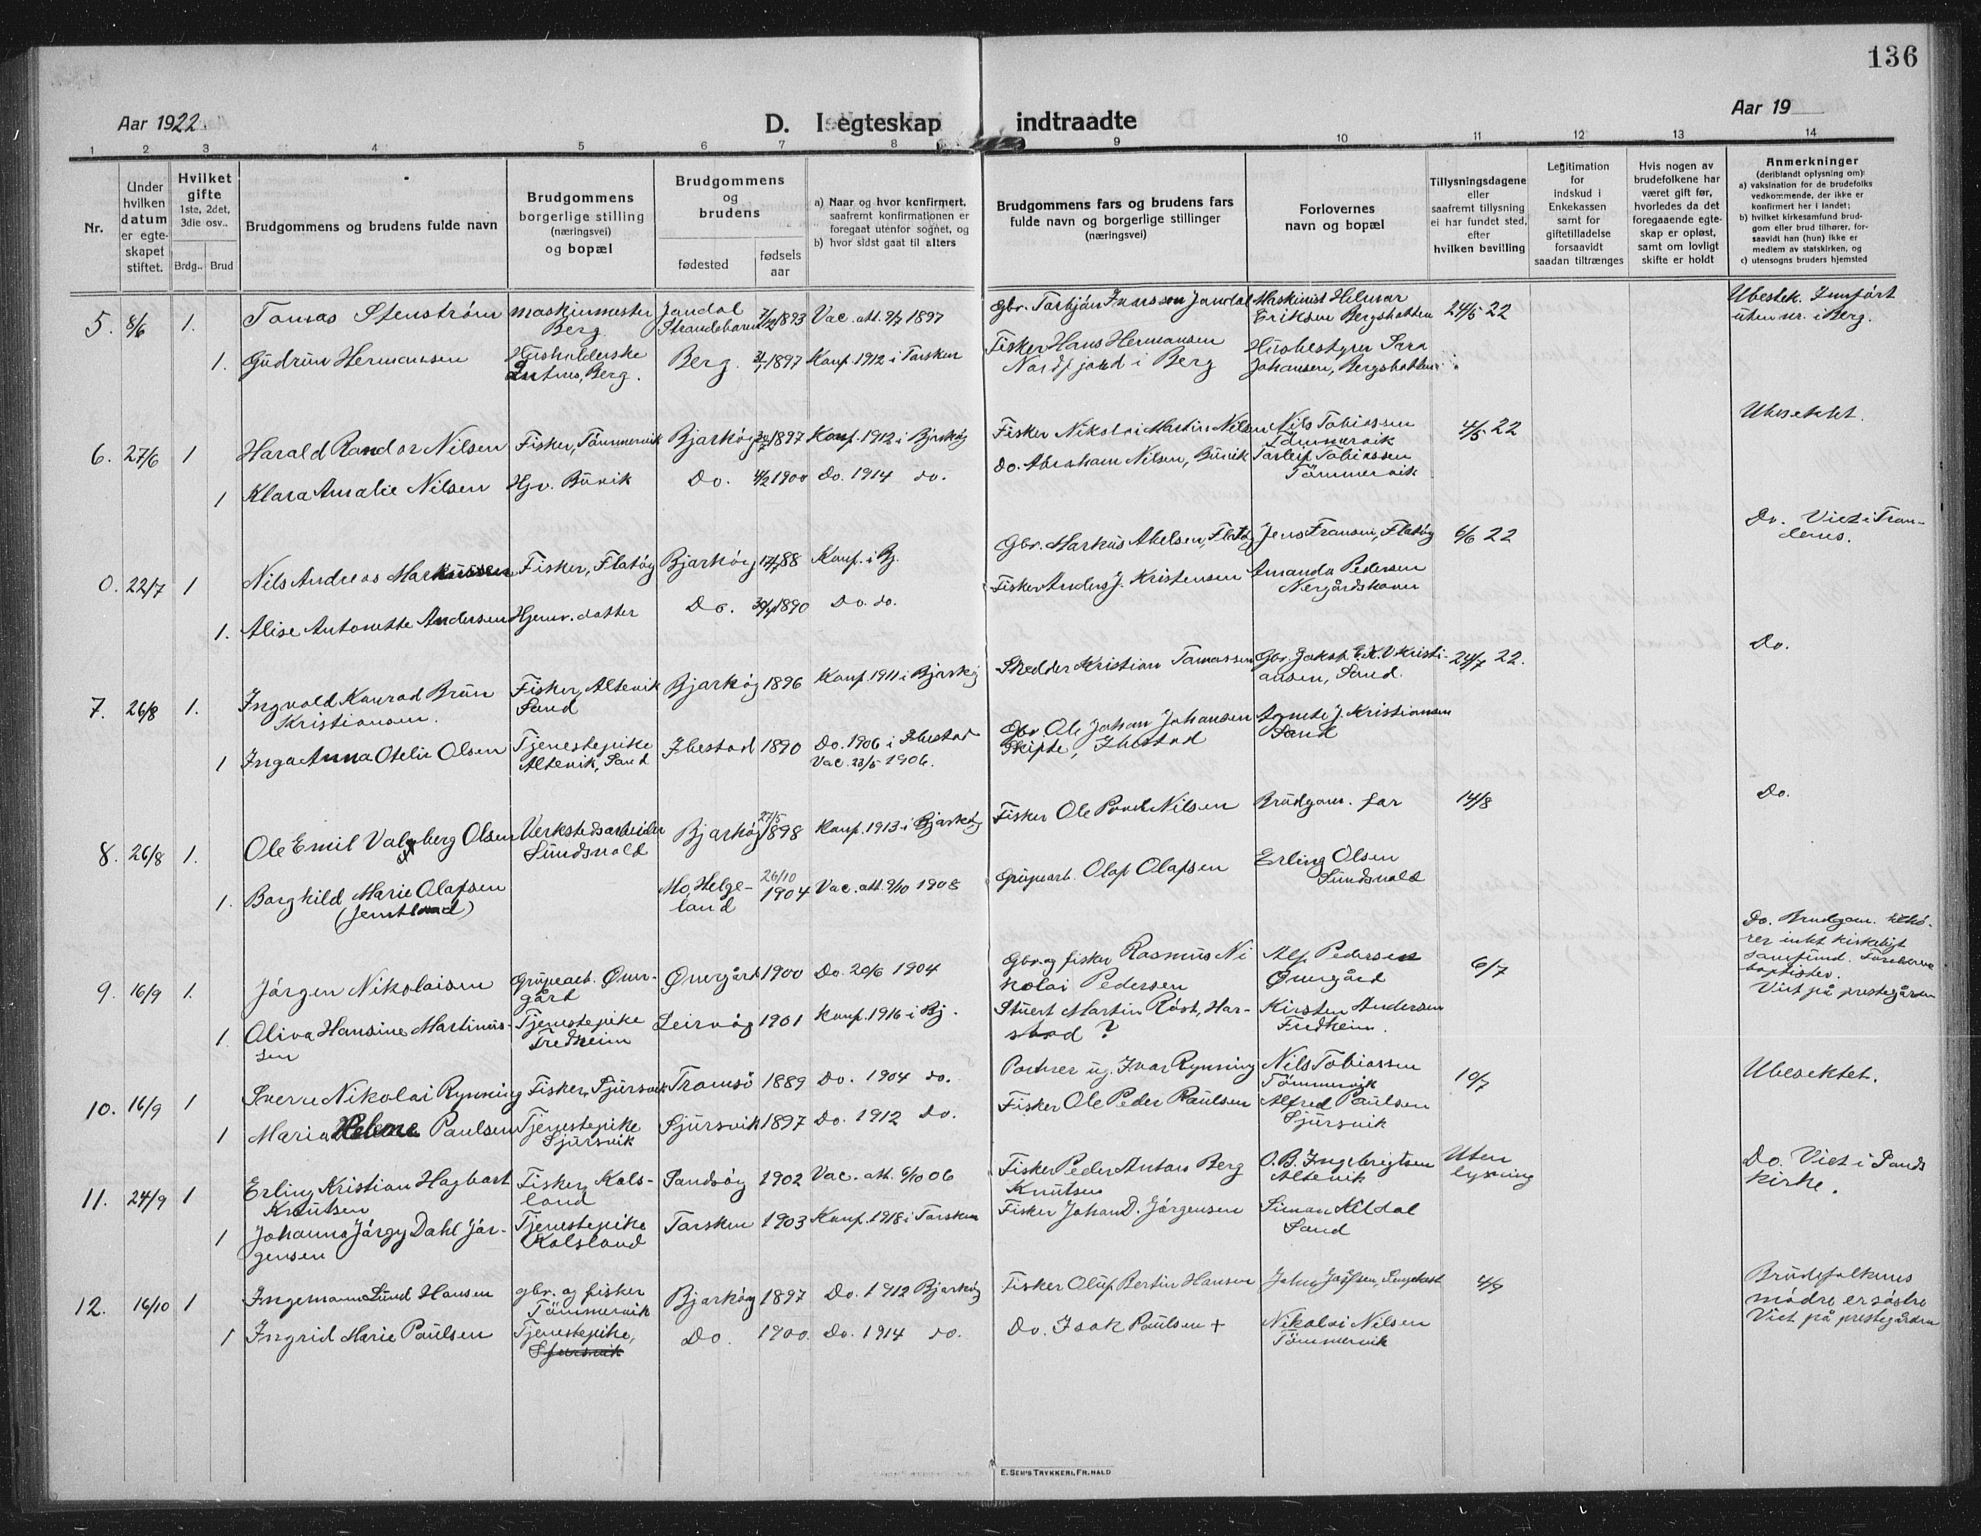 136
Aar 1922.
D. I egteskap indtraadte
Aar 19
1 2 3 4 5 6 7 8 9 10 11 12 13 14
Nr.
Under
hvilken
datum
er egte-
skapet
stiftet.
Hvilket
gifte
1ste, 2det,
3die osv..
Brdg.. Brud
Brudgommens og brudens fulde navn
Brudgommens
borgerlige stilling
(næringsvei)
og bopæl
Brudgommens
og
brudens
fødested
fødsels
aar
a) Naar og hvor konfirmert,
saafremt konfirmationen er
foregaat utenfor sognet, og
b) hvor sidst gaat til alters
Brudgommens fars og brudens fars
fulde navn og borgerlige stillinger
(næringsvei)
Forlovernes
navn og bopæl
Tillysningsdagene
eller
saafremt tillysning
ei har fundet sted,
efter
hvilken bevilling
Legitimation
for
indskud i
Enkekassen
samt for
giftetilladelse
forsaavidt
saadan tiltrænges
Hvis nogen av
brudefolkene har
været gift før,
hvorledes da det
foregaaende egte-
skap er opløst,
samt om lovligt
skifte er holdt
Anmerkninger
(deriblandt oplysning om):
a) vaksination for de brudefolks
vedkommende, der ikke er
konfirmert her i landet;
b) hvilket kirkesamfund brud-
gom eller brud tilhører, for-
saavidt han (hun) ikke er
medlem av statskirken, og
c) utensogns bruders hjemsted
5. 8/6 1. Tomas Stenstrøm
Maskinmester
Berg.
Jondal
Strandebarm 1893 Vac. att. 9/7 1897
Gbr. Torbjøn Ivarsson Jondal
Maskinist Hilmar
Eriksen Bergsbotten
24/5 22
Ubeslek. Innført
uten nr. i Berg.
1. Gudrun Hermansen
Husholderske
Berg.
Berg. 1897 Konf. 1912 i Torsken
Fisker Hans Hermansen
Nordfjord i Berg
Husbestyrer Sara
Johansen, Bergsbotten
6. 27/6 1 Harald Randor Nilsen
Fisker, Tømmervik Bjarkøy 1897 Konf. 1912 i Bjarkøy
Fisker Nikolai Martin Nilsen
Nils Tobiassen
Tømmervik
4/5 22
Ubesektet.
1 Klara Amalie Nilsen
Hjv. Buvik Do. 4/2 1900 Do. 1914 do.
Do. Abraham Nilsen, Buvik
Torleif Tobiassen
Tømmervik
0. 22/7 1 Nils Andreas Markussen
Fisker, Flatøy Bjarkøy 88 Konf. i Bj.
Gbr. Markus Abelsen, Flatøy
Jens Fransen, Flatøy
6/6 22
Do. Viet i Tran-
øens.
1. Alise Antonette Andersen
Hjemv. datter Do. 1890 Do. do.
Fisker Anders J. Kristensen
Amanda Pedersen
Nergårdshavn
7. 26/8 1. Ingvald Konrad Brun
Kristiansen.
Fisker, Altevik
Sand
Bjarkøy 1896 Konf. 1911 i Bjarkøy
Skredder Kristian Tomassen
Gbr. Jakob E. K. V. Kristi-
ansen, Sand.
24/7 22.
Do.
1 Inga Anna Otelie Olsen
Tjenestepike
Altevik, Sand
Ibestad 1890 Do. 1906 i Ibestad
Vac. 23/5 1906.
Gbr. Ole Johan Johansen
Skipte, Ibestad
Agnete J. Kristiansen
Sand
8. 26/8 1. Ole Emil Valyberg Olsen
Verkstedsarbeider
Sundsvold
Bjarkøy 27/5 1898 Konf. 1913 i Bjarkøy
Fisker Ole Povel Nilsen
Brudgom. far
14/8
Do.
1. Borghild Marie Olafsen
(Jemtland)
Mo, Helge-
land
26/10 1904 Vac. att. 9/10 1908
Grubearb. Olaf Olafsen
Erling Olsen
Sundsvold
9. 16/9 1. Jørgen Nikolaisen
Grubearb. Øver-
gård
Øvergård 1900 Do. 20/6 1904
Gbr. og fisker Rasmus Ni
kolai Pedersen
Alf Pedersen
Øvergård
6/7
Do. Brudgom. tilhø-
rer intet kirkeligt
samfund. Foreldrene
baptister.
Viet på prestegården
1 Oliva Hansine Martinus-
sen
Tjenestepike
Fredheim
Leirvåg 1901 Konf. 1916 i Bj.
Stuert Martin Røst, Har-
stad ?
Kirsten Andersen
Fredheim.
10. 16/9 1 Sverre Nikolai Rynning
Fisker, Sjursvik Tromsø 1889 Do. 1904 do.
Partner ug. Ivar Rynning
Nils Tobiassen
Tømmervik
10/7
Ubesektet.
1 Maria Helene Paulsen
Tjenestepike
Sjursvik
Sjursvik 1897 Do. 1912 do.
Fisker Ole Peder Paulsen
Alfred Paulsen
Sjursvik
11. 24/9 1 Erling Kristian Hagbart
Knutsen
Fisker, Kals-
land
Sandsøy 1902 Vac. att. 6/10 06
Fisker Peder Antoni Berg
Knutsen
O. B. Ingebrigtsen
Altevik
Uten
lysning
Do. Viet i Sands
kirke.
1 Johanna Jørgy Dahl Jør-
gensen
Tjenestepike
Kalsland
Torsken 1903 Konf. 1918 i Torsken
Fisker Johan D. Jørgensen
Simon Kildal
Sand
12. 16/10 1 Ingemann Lund Hansen
gbr. og fisker
Tømmervik
Bjarkøy 1897 Do. 1912 Bjarkøy
Fisker Oluf Bertin Hansen
4/9
Brudefolkenes
mødre er søstre
Viet på prestegården
1 Ingrid Marie Paulsen
Tjenestepike,
Sjursvik
Do. 1900. Do. 1914 do.
Do. Isak Paulsen +
Nikolai Nilsen
Tømmervik
E. SEM'S TRYKKERI, FR.HALD